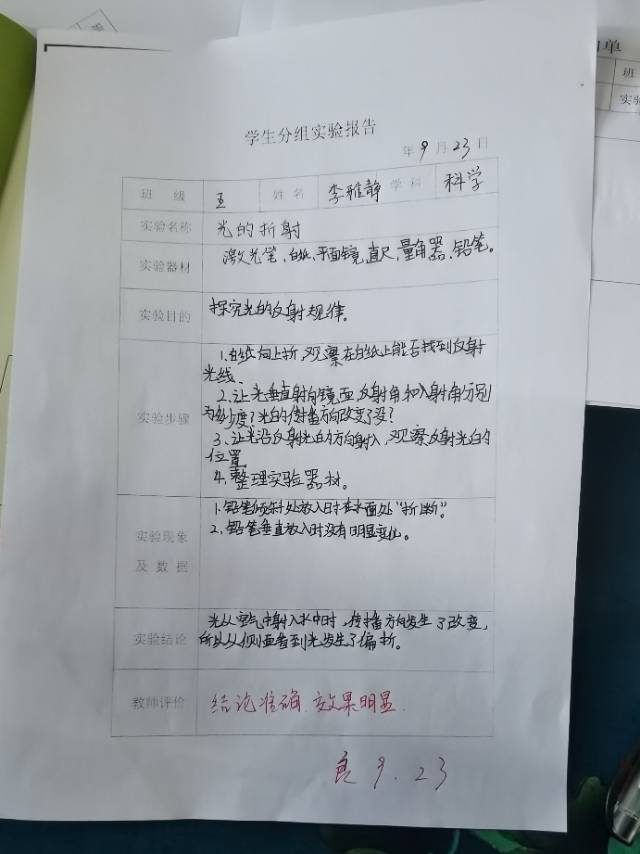 学生分组实验报告
年 9 月 23 日
班 级 五 姓 名 李雅静 学 科 科学
实验名称 光的折射
实验器材 激光笔、白纸、平面镜、直尺、量角器、铅笔。
实验目的 探究光的反射规律。
1.白纸向上折,观察在白纸上能否找到反射
光线.
2.让光垂直射向镜面,反射角和入射角分别
为多少度?光的传播方向改变了没?
实验步骤
3.让光沿反射光的方向射入,观察反射光的
位置
4.整理实验器材.
1.铅笔倾斜处放入时在水面处“折断”。
2.铅笔垂直放入时没有明显变化。
实验现象
及 数 据
光从空气中射入水中时,传播方向发生了改变,
实验结论 所以从侧面看到光发生了偏折。
教师评价 结论准确.效果明显.
良 9.23
单
班
实验